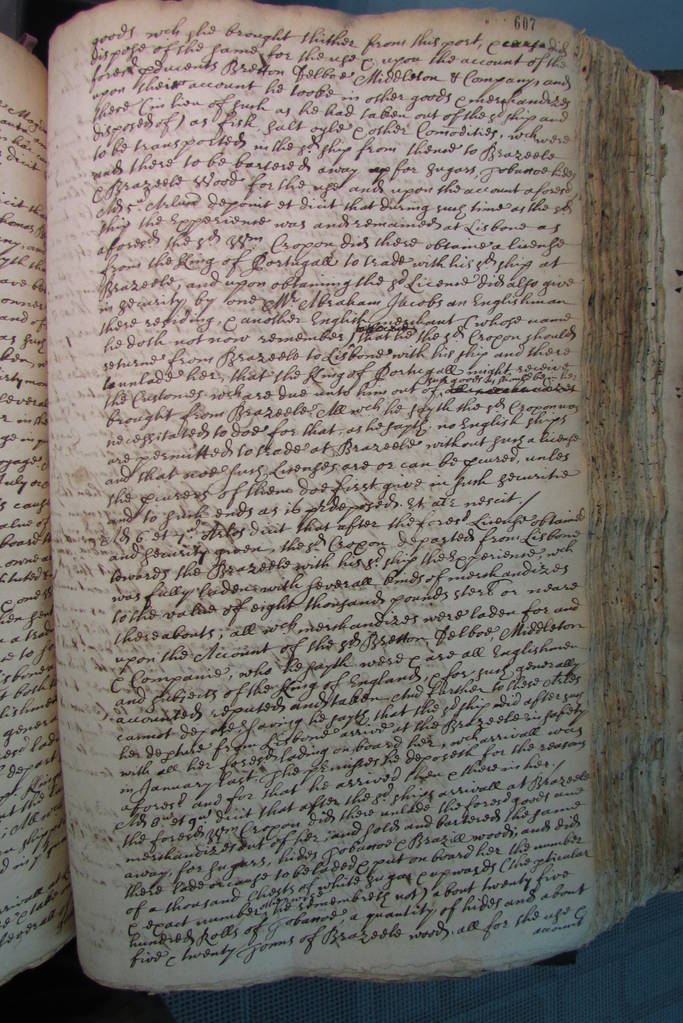 607
goods wch she brought thither from this port, & did
dispose of the same for the use & upon the account of the
foresd producents Bretton Delboe Middleton & Company, and
upon their account he tooke in other goods & merchandizes
there (in lieu of such as he had taken out of the sd ship and
disposed of) as Fish, salt oyle & other Comodities, wch were
to be transported in the sd ship from thence to Brazeele
and there to be bartered away for sugars, Tobaccoe hides
& Brazeele Wood for the use and upon the account aforesd
Ad 5m Arlum deponit et dicit that during such time as the sd
ship the Experience was and remained at Lisbone as
aforesd the sd Wm Cropon did there obtaine a license
from the King of Portugall to trade with his sd ship at
Brazeele, and upon obtaining the sd License did also give
in security by one Mr Abraham Jacobs an Englishman
there residing, & another English merchant (whose name
he doth not now remember) that he the sd Cropon should
returne from Brazeele to Lisbone with his ship and there
unlade her, that the King of Portugall might receive
the Customes wch are due unto him out of such goods as should be in her
brought from Brazeele, All wch he sayth the sd Cropon was
necessitated to doe for that, as he sayth, no English ships
are permitted to trade at Brazeele without such a license
and that noe such Licenses are or can be procured, unles
the procurers of them doe first give in such securitie
and to such ends as is predeposed. et aliter nescit./
Ad 6 et 7 Arlos dicit that after the foresd License obtained
and security given, the sd Cropon departed from Lisbone
towards the Brazeele with his sd ship the Experience, wch
was fully laden with severall kinds of merchandizes
to the value of eight thousand pounds sterl or neare
thereabouts, all wch merchandizes were laden for and
upon the Account of the sd Bretton Delboe, Middleton
& Companie, who he sayth were & are all Englishmen
and subjects of the King of England, & for such generally
accounted reputed and taken. And further to these Arlos
cannot depose saving he sayth that the sd ship did after such
her departure from Lisbone arrive at the Brazeele in safety
with all her foresd lading on board her, wch arrivall was
in January last. The premisses he deposeth for the reasons
aforesd and for that he arrived then & there in her./
Ad 8 et 9 dicit that after the sd ships arrivall at Brazeele
the foresd Wm Cropon did there unlade the foresd goods and
merchandizes out of her, and sold and bartered the same
away, for sugars, hides Tobaccoe & Brazill wood; and did
there lade or cause to be laded & put on board her the number
of a thousand Chests of white sugar & upwards (the pticular
& exact number he remembreth not) about twenty five
hundred Rolls of Tobaccoe a quantity of hides and about
five & twenty Tonns of Brazeele wood, all for the use &
account